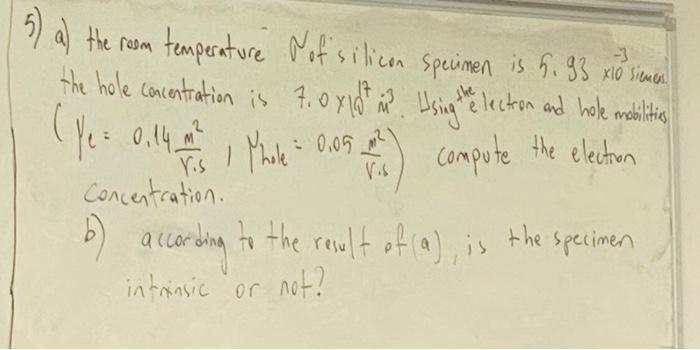 5) a) the room temperature σ of silicon specimen is 5.93 x10⁻³ siemen.
the hole concentration is 7.0 x 10¹⁷ m⁻³. Using the electron and hole mobilities
(μe = 0.14 m²/V.s , μhole = 0.05 m²/V.s) compute the electron
concentration.
b) according to the result of (a), is the specimen
intrinsic or not?